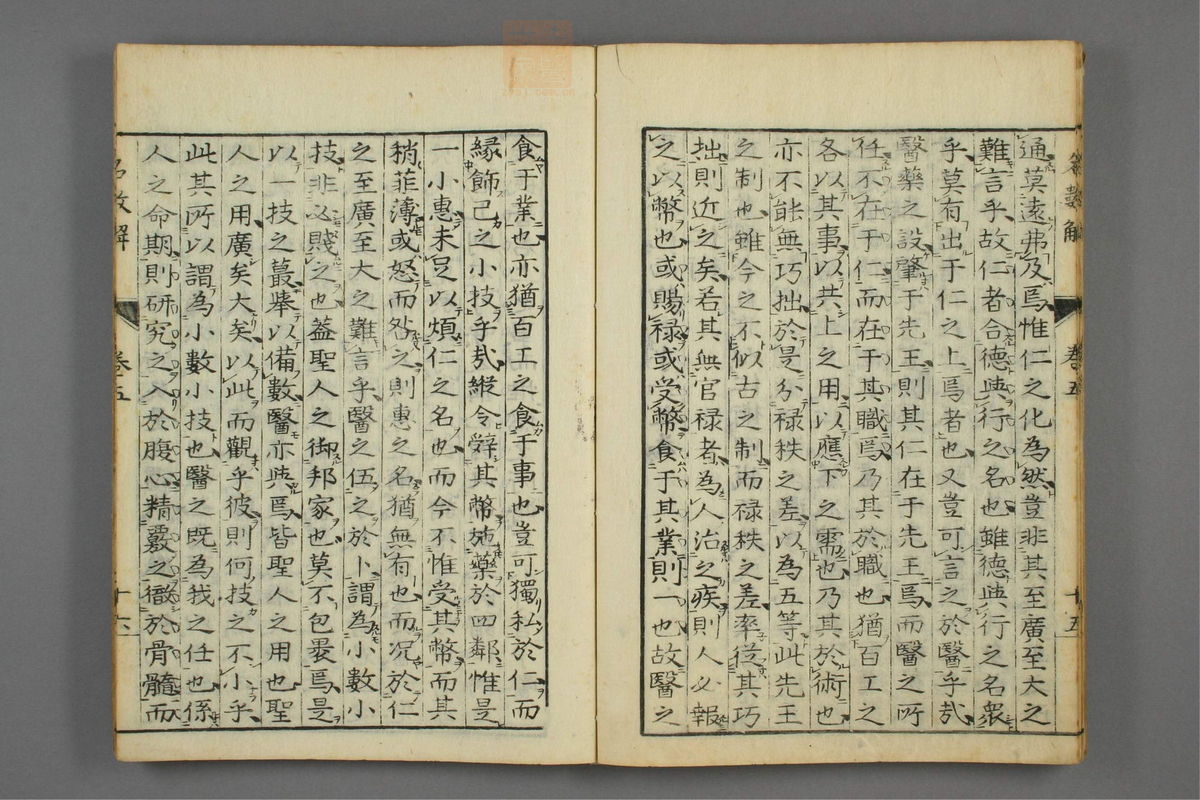 通莫遠弗及焉惟仁之化為然豈非其至廣至大之
難言乎故仁者合德與行之名也雖德與行之名衆
乎莫有出于仁之上焉者也又豈可言之於醫乎哉
醫藥之設肇于先王則其仁在于先王焉而醫之所
任不在于仁而在于其職焉乃其於職也猶百工之
各以其事以共上之用以應下之需也乃其於術也
亦不能無巧拙於是分祿秩之差以為五等此先王
之制也雖今之不似古之制而祿秩之差率從其巧
拙則近之矣若其無官祿者為人治之疾則人必報
之以幣也或賜祿或受幣食于其業則一也故醫之
卷五
十五
食于業也亦猶百工之食于事也豈可獨私於仁而
緣飾己之小技乎哉縱令辭其幣施藥於四鄰惟是
一小惠未足以煩仁之名也而今不惟受其幣而其
稍菲薄或怒而咎之則惠之名猶無有也而況於仁
之至廣至大之難言乎醫之伍之於卜謂為小數小
技非以賤之也蓋聖人之御邦家也莫不包裹焉是
以一技之蕞舉以備數醫亦與焉皆聖人之用也聖
人之用廣矣大矣以此而觀乎彼則何技之不小乎
此其所以謂為小數小技也醫之既為我之任也係
人之命期則研究之入於腹心精覈之徹於骨髓而
卷五
十六